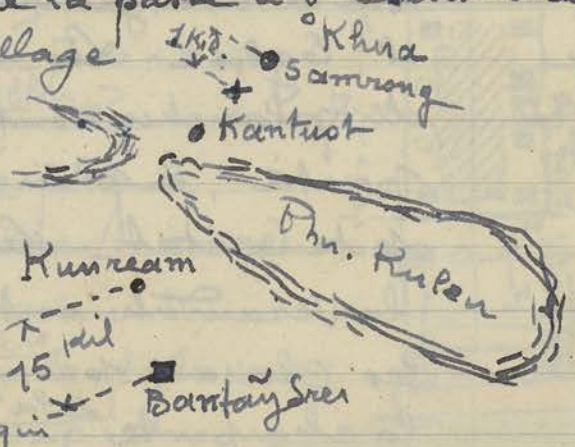 de la pa
llage
1 Kil.
Khna
Samrong
Kantuot
Phn. Kulen
Kunream
15 Kil
Bantãy Srei